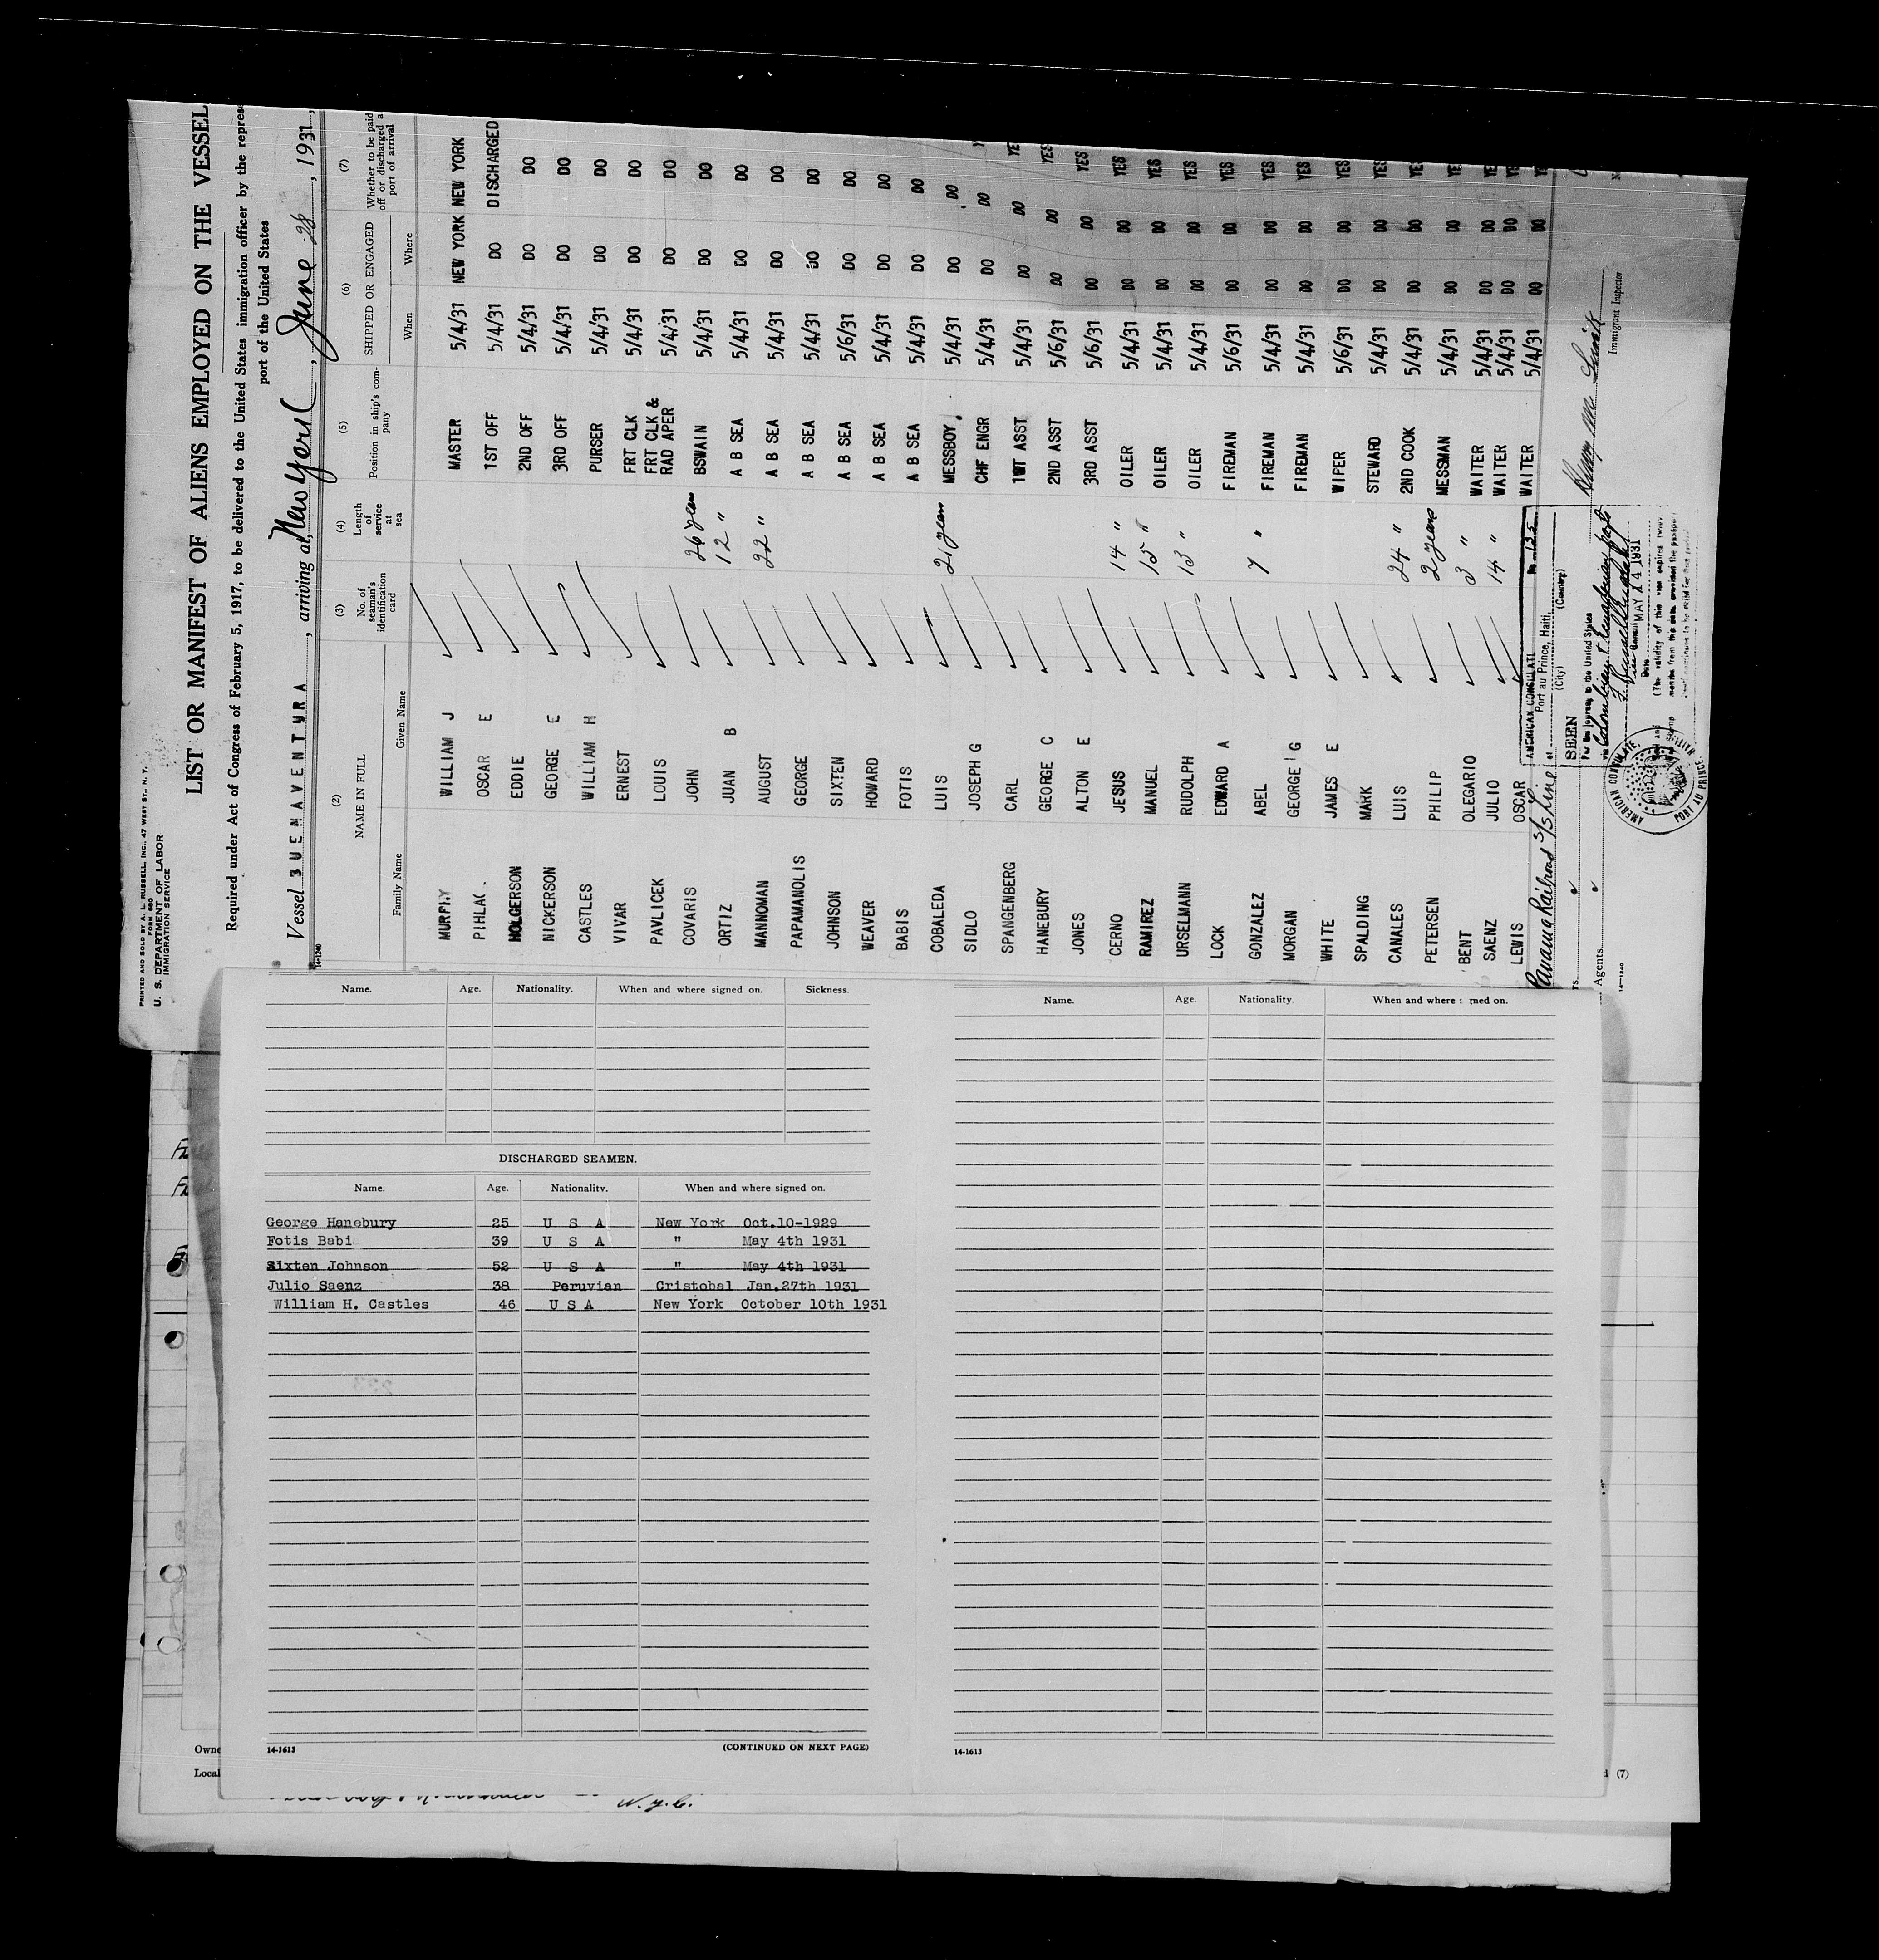 PRINTED AND SOLD BY A. L. RUSSELL, INC., 47 WEST ST., N. Y.
FORM 680
U. S. DEPARTMENT OF LABOR
IMMIGRATION SERVICE
LIST OR MANIFEST OF ALIENS EMPLOYED ON THE VESSEL
Required under Act of Congress of February 5, 1917, to be delivered to the United States immigration officer by the repres
port of the United States
Vessel BUENAVENTURA, arriving at New York, June 28, 1931,
14-1240
(2) (3) (4) (5) (6) (7)
NAME IN FULL No. of seaman's identification card Length of service at sea Position in ship's com-pany SHIPPED OR ENGAGED Whether to be paid off or discharged a port of arrival
Family Name Given Name When Where
MURPHY WILLIAM J MASTER 5/4/31 NEW YORK NEW YORK
PIHLAC OSCAR E 1ST OFF 5/4/31 DO DISCHARGED
HOLGERSON EDDIE 2ND OFF 5/4/31 DO DO
NICKERSON GEORGE E 3RD OFF 5/4/31 DO DO
CASTLES WILLIAM H PURSER 5/4/31 DO DO
VIVAR ERNEST FRT CLK 5/4/31 DO DO
PAVLICEK LOUIS FRT CLK & RAD APER 5/4/31 DO DO
COVARIS JOHN 26 years BSWAIN 5/4/31 DO DO
ORTIZ JUAN B 12 " A B SEA 5/4/31 DO DO
MANNOMAN AUGUST 22 " A B SEA 5/4/31 DO DO
PAPAMANOLIS GEORGE A B SEA 5/4/31 DO DO
JOHNSON SIXTEN A B SEA 5/6/31 DO DO
WEAVER HOWARD A B SEA 5/4/31 DO DO
BABIS FOTIS A B SEA 5/4/31 DO DO
COBALEDA LUIS 21 years MESSBOY 5/4/31 DO DO
SIDLO JOSEPH G CHF ENGR 5/4/31 DO DO
SPANGENBERG CARL 1WT ASST 5/4/31 DO DO YE
HANEBURY GEORGE C 2ND ASST 5/6/31 DO DO YES
JONES ALTON E 3RD ASST 5/6/31 DO DO YES
CERNO JESUS 14 " OILER 5/4/31 DO DO YES
RAMIREZ MANUEL 15 " OILER 5/4/31 DO DO YES
URSELMANN RUDOLPH 13 " OILER 5/4/31 DO DO YES
LOCK EDWARD A FIREMAN 5/6/31 DO DO YES
GONZALEZ ABEL 7 " FIREMAN 5/4/31 DO DO YES
MORGAN GEORGE G FIREMAN 5/4/31 DO DO YES
WHITE JAMES E WIPER 5/6/31 DO DO YES
SPALDING MARK STEWARD 5/4/31 DO DO YES
CANALES LUIS 24 " 2ND COOK 5/4/31 DO DO YES
PETERSEN PHILIP 2 years MESSMAN 5/4/31 DO DO YE
BENT OLEGARIO 3 " WAITER 5/4/31 DO DO YE
SAENZ JULIO 14 " WAITER 5/4/31 DO DO YE
LEWIS OSCAR WAITER 5/4/31 DO DO YE
Panama Railroad S/S Line
AMERICAN CONSULATE No 135
at Port au Prince, Haiti
(City) (Country)
SEEN
For the journey to the United States
via Colombian & Ecuadorian ports
Date MAY 14 1931
(The validity of this visa expires twelve
months from this date, provided the passport
AMERICAN CONSULATE
PORT AU PRINCE, HAITI
Immigrant Inspector
Agents
14-1240
Name. Age. Nationality. When and where signed on. Sickness.
DISCHARGED SEAMEN.
Name. Age. Nationality. When and where signed on.
George Hanebury 25 U S A New York Oct.10-1929
Fotis Babi 39 U S A " May 4th 1931
Sixten Johnson 52 U S A " May 4th 1931
Julio Saenz 38 Peruvian Cristobal Jan.27th 1931
William H. Castles 46 U S A New York October 10th 1931
14-1613 (CONTINUED ON NEXT PAGE)
Name. Age. Nationality. When and where signed on.
14-1613
Owne
Local
(7)